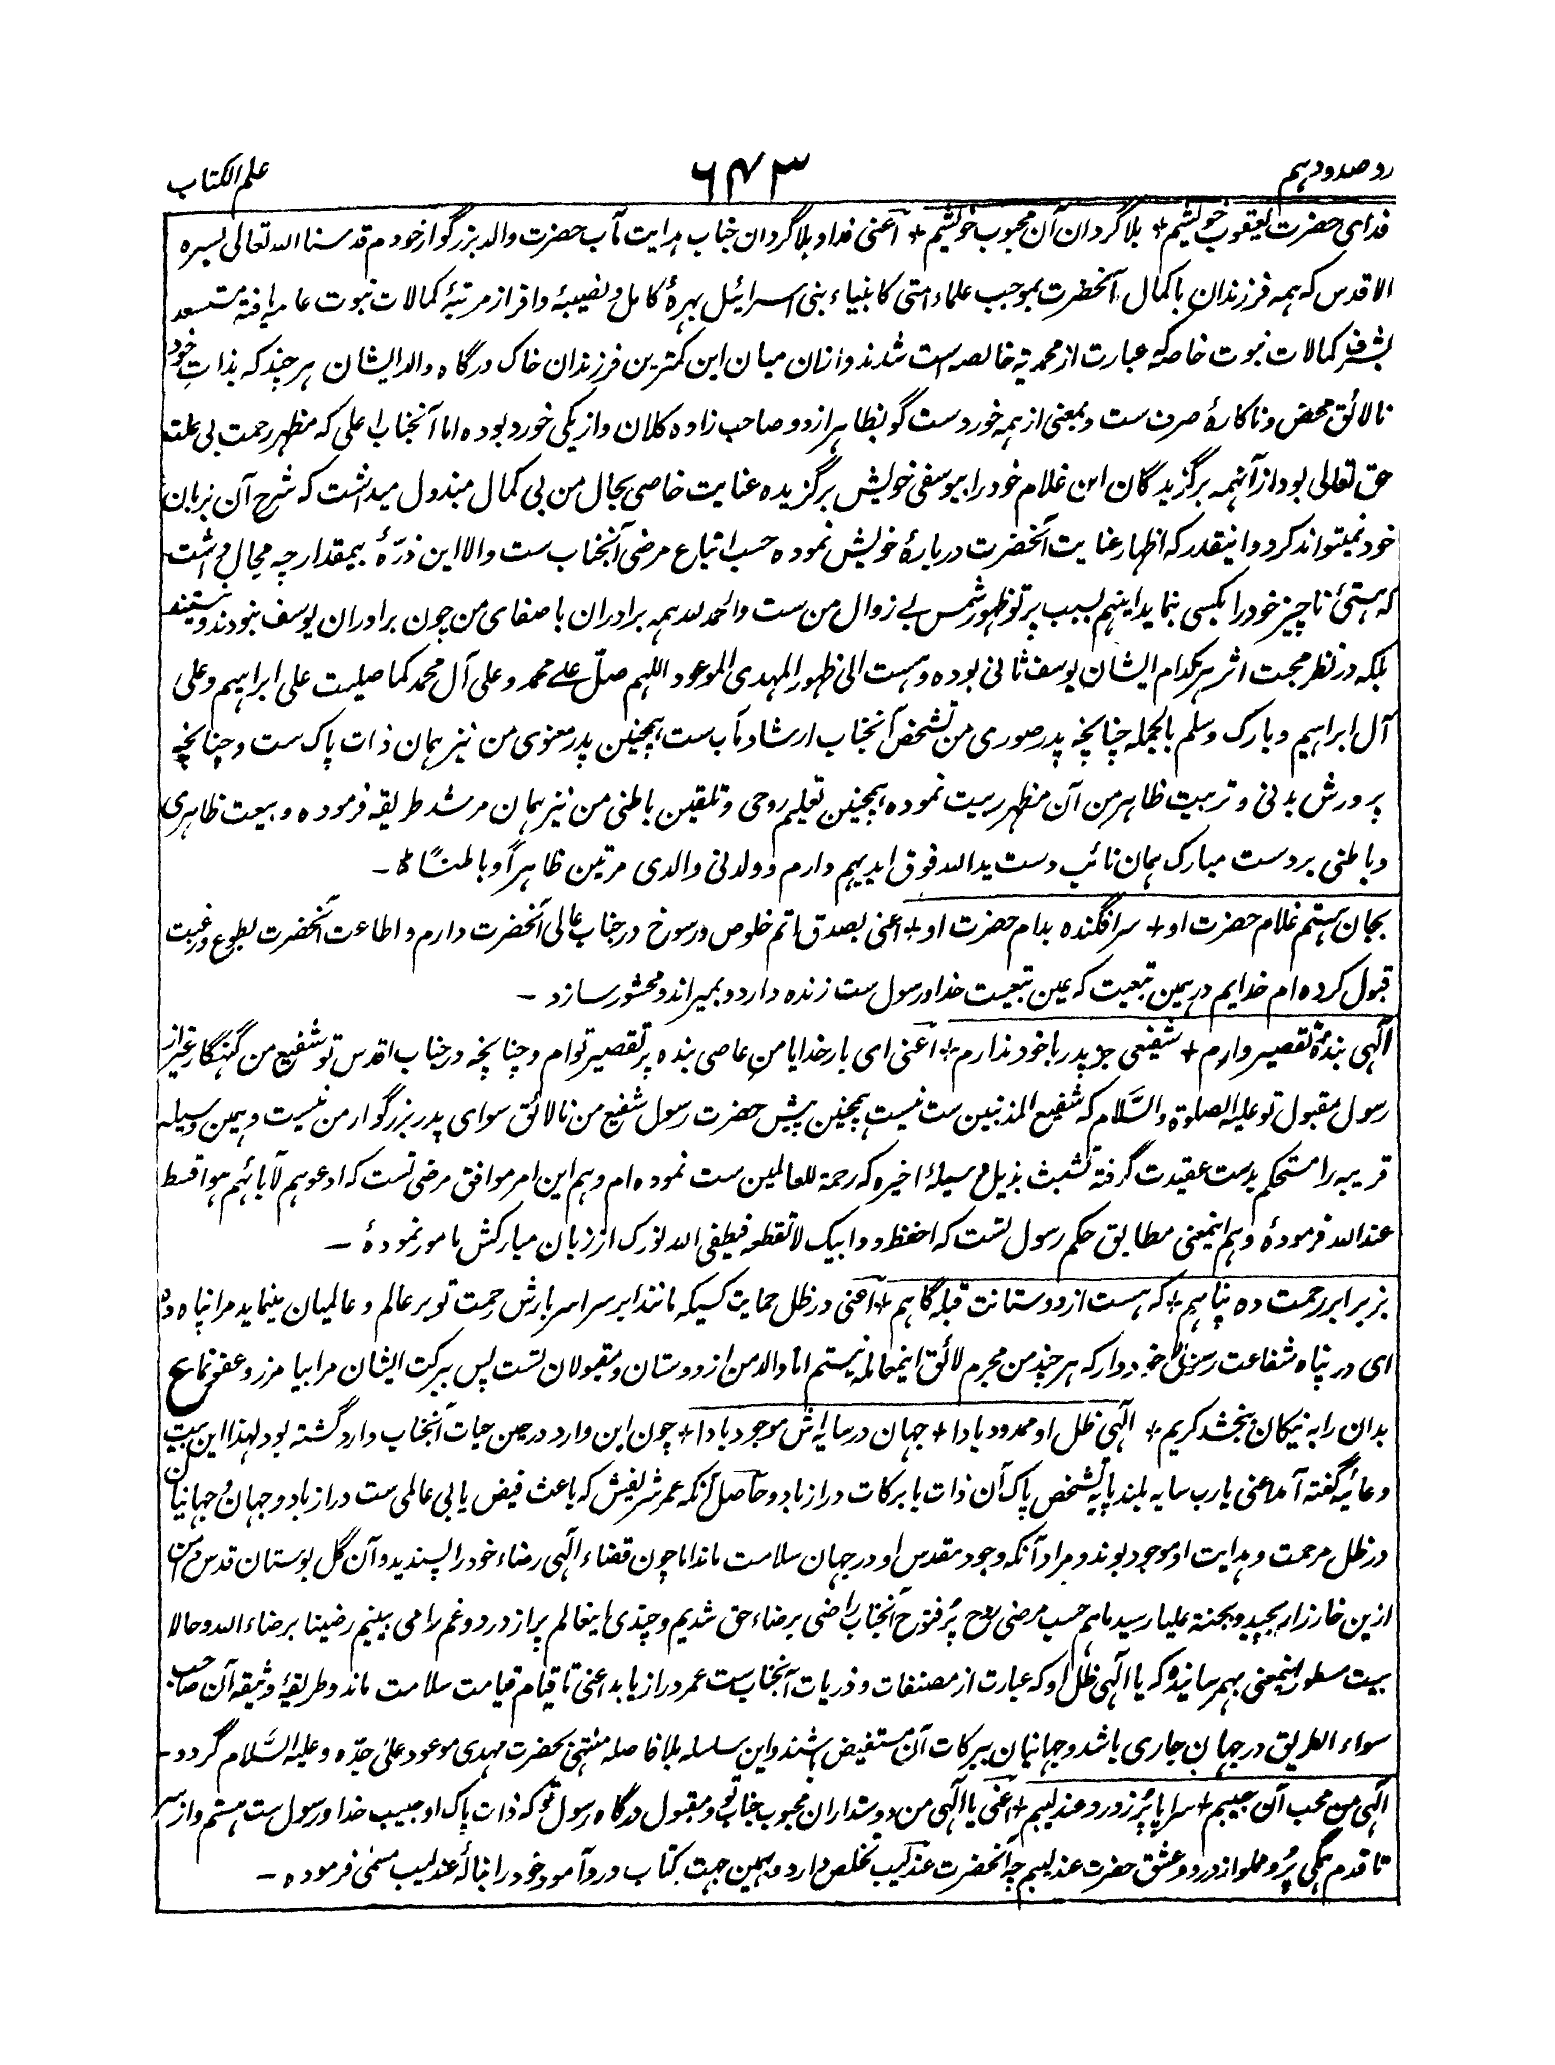 رد صد و دہم ۶۴۳ علم الکتاب
فدای حضرت یعقوب خویشیم + بلا گردان آن محبوب خویشیم + اعنی فدا و بلا گردان جناب ہدایت مآب حضرت والد بزرگوار خودم قدسنا اللہ تعالیٰ بسرہ
الاقدس کہ ہمہ فرزندان با کمال آنحضرت بموجب علماء امتی کانبیاء بنی اسرائیل بہرۂ کامل و نصیبۂ وافر از مرتبۂ کمالات نبوت عامہ یافتہ مستسعد
بشرف کمالات نبوت خاصہ کہ عبارت از محمدیۃ خالصہ است شدند و ازان میان این کمترین فرزندان خاک درگاہ والد ایشان ہر چند کہ بذات خود
نالائق محض و ناکارۂ صرف ست و بمعنی از ہمہ خورد ست گو بظاہر از دو صاحب زادہ کلان و از یکی خورد بودہ اما آنجناب اعلی کہ مظہر رحمت بی علت
حق تعالی بود از آنہمہ برگزیدگان این غلام خود را بیوسفی خویش برگزیدہ عنایت خاصی بحال من بی کمال مبذول میداشت کہ شرح آن بزبان
خود نمیتواند کرد و اینقدر کہ اظہار عنایت آنحضرت دربارۂ خویش نمودہ حسب اتباع مرضی آنجناب ست والا این ذرّۂ بیمقدار چہ مجال داشت
کہ ہستیٔ ناچیز خود را بکسی بنماید اینہم بسبب پرتو ظہور شمس بے زوال من ست و الحمد للہ ہمہ برادران با صفای من چون برادران یوسف نبودند و نیستند
بلکہ در نظر محبت اثر ہر کدام ایشان یوسف ثانی بودہ و ہست الی ظہور المہدی الموعود اللہم صلّ علے محمد و علی آل محمد کما صلیت علی ابراہیم و علی
آل ابراہیم و بارک وسلم بالجملہ چنانچہ پدر صوری من تشخص آنجناب ارشاد مآب ست ہمچنین پدر معنوی من نیز ہمان ذات پاک ست و چنانچہ
پرورش بدنی و تربیت ظاہر من آن مظہر ربیت نمودہ ہمچنین تعلیم روحی و تلقین باطنی من نیز ہمان مرشد طریقہ فرمودہ و بیعت ظاہری
و باطنی بر دست مبارک ہمان نائب دست ید اللہ فوق ایدیہم دارم و ولدنی والدی مرتین ظاہراً و باطناً ۔
بجان ہستم غلام حضرت او + سرافگندہ بدام حضرت او + اعنی بصدق اتم خلوص و رسوخ در جناب عالی آنحضرت دارم و اطاعت آنحضرت بطوع و رغبت
قبول کردہ ام خدایم در ہمین تبعیت کہ عین تبعیت خدا و رسول ست زندہ دارد و بمیراند و محشور سازد ۔
الٰہی بندۂ تقصیر وارم + شفیعی جز پدر با خود ندارم + اعنی ای بار خدایا من عاصی بندہ پر تقصیر توام و چنانچہ در جناب اقدس تو شفیع من گنہگار غیر از
رسول مقبول تو علیہ الصلوۃ والسّلام کہ شفیع المذنبین ست نیست ہمچنین پیش حضرت رسول شفیع من نالائق سوای پدر بزرگوار من نیست و ہمین وسیلہ
قریبہ را مستحکم بدست عقیدت گرفتہ تشبث بذیل وسیلۂ اخیرہ کہ رحمۃ للعالمین ست نمودہ ام و ہم این امر موافق مرضی تست کہ ادعوہم لآبائہم ہو اقسط
عند اللہ فرمودۂ و ہم اینمعنی مطابق حکم رسول تست کہ احفظ ود ابیک لا تقطعہ فیطفی اللہ نورک از زبان مبارکش مامور نمودۂ ۔
بزیر ابر رحمت دہ پناہم + کہ ہست از دوستانت قبلہ گاہم + اعنی در ظل حمایت کسیکہ مانند ابر سراسر بارش رحمت تو بر عالم و عالمیان مینماید مرا پناہ دہ
ای در پناہ شفاعت رسول خود دار کہ ہر چند من مجرم لائق اینمعاملہ نیستم اما والد من از دوستان و مقبولان تست پس ببرکت ایشان مرا بیامرز و عفو نما ع
بدان را بہ نیکان ببخشد کریم + الٰہی ظل او ممدود بادا + جہان در سایہ اش موجود بادا + چون این وارد در حین حیات آنجناب وارد گشتہ بود لہذا این بیت
دعائیہ گفتہ آمد اعنی یارب سایہ بلند پایہ تشخص پاک آن ذات با برکات دراز باد و حاصل آنکہ عمر شریفش کہ باعث فیض یابی عالمی ست دراز باد و جہان و جہانیان
در ظل مرحمت و ہدایت او موجود بوند و مراد آنکہ وجود مقدس او در جہان سلامت ماند اما چون قضاء الٰہی رضاء خود را پسندید و آن گل بوستان قدس دامن
ازین خارزار بچید و بجنۃ علیا رسید ماہم حسب مرضی روح پُر فتوح آنجناب راضی برضاء حق شدیم و چندی اینعالم پر از درد و غم را می بینیم رضینا برضاء اللہ و حالا
بیت مسطور اینمعنی بہم رسانیدہ کہ یا الٰہی ظل او کہ عبارت از مصنفات و ذریات آنجناب ست عمر دراز یابد اعنی تا قیام قیامت سلامت ماند و طریقۂ وثیقہ آن صاحب
سواء الطریق در جہان جاری باشد و جہانیان ببرکات آن مستفیض باشند و این سلسلہ بلا فاصلہ منتہی بحضرت مہدی موعود علیٰ جدّہ و علیہ السّلام گردد ۔
الٰہی من محب آن حبیبم + سراپا پُر ز درد عندلیبم + اعنی یا الٰہی من دوستداران محبوب جناب تو و مقبول درگاہ رسول تو کہ ذات پاک او حبیب خدا و رسول ست ہستم و از سر
تا قدم ہمگی پُر و مملو از درد و عشق حضرت عندلیبم چہ آنحضرت عندلیب تخلص دارد و بہمین جہت کتاب درد آمود خود را بنالۂ عندلیب مسمّی فرمودہ ۔